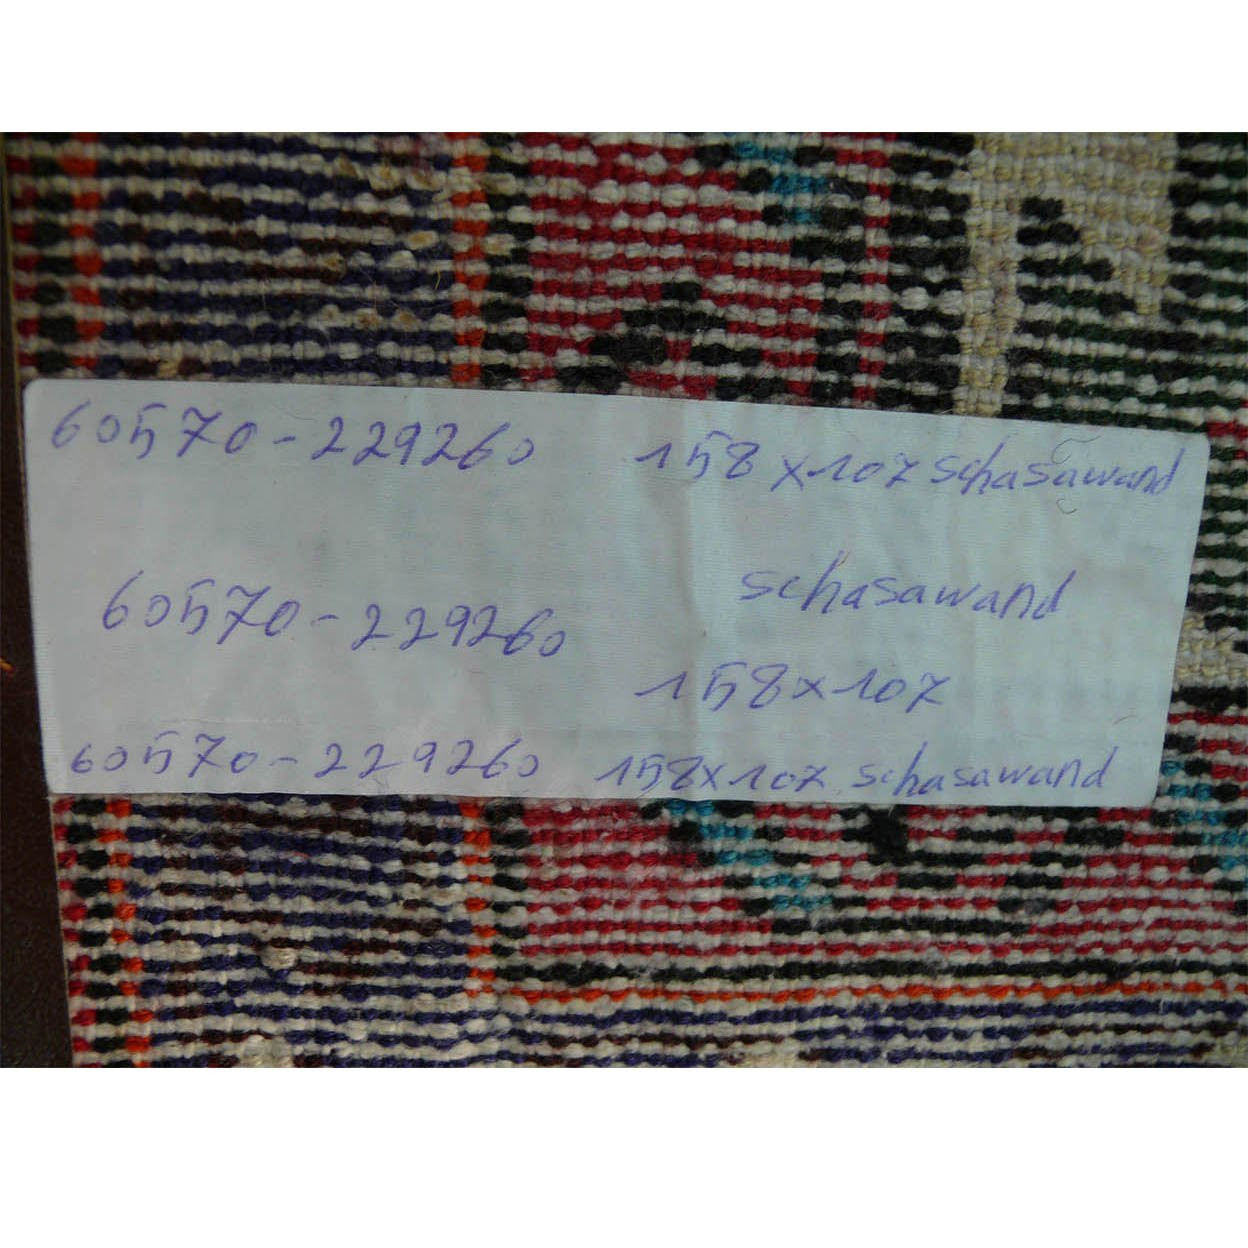 60570-229260 158x107 schasawand
schasawand
60570-229260
158x107
60570-229260 158x107 schasawand